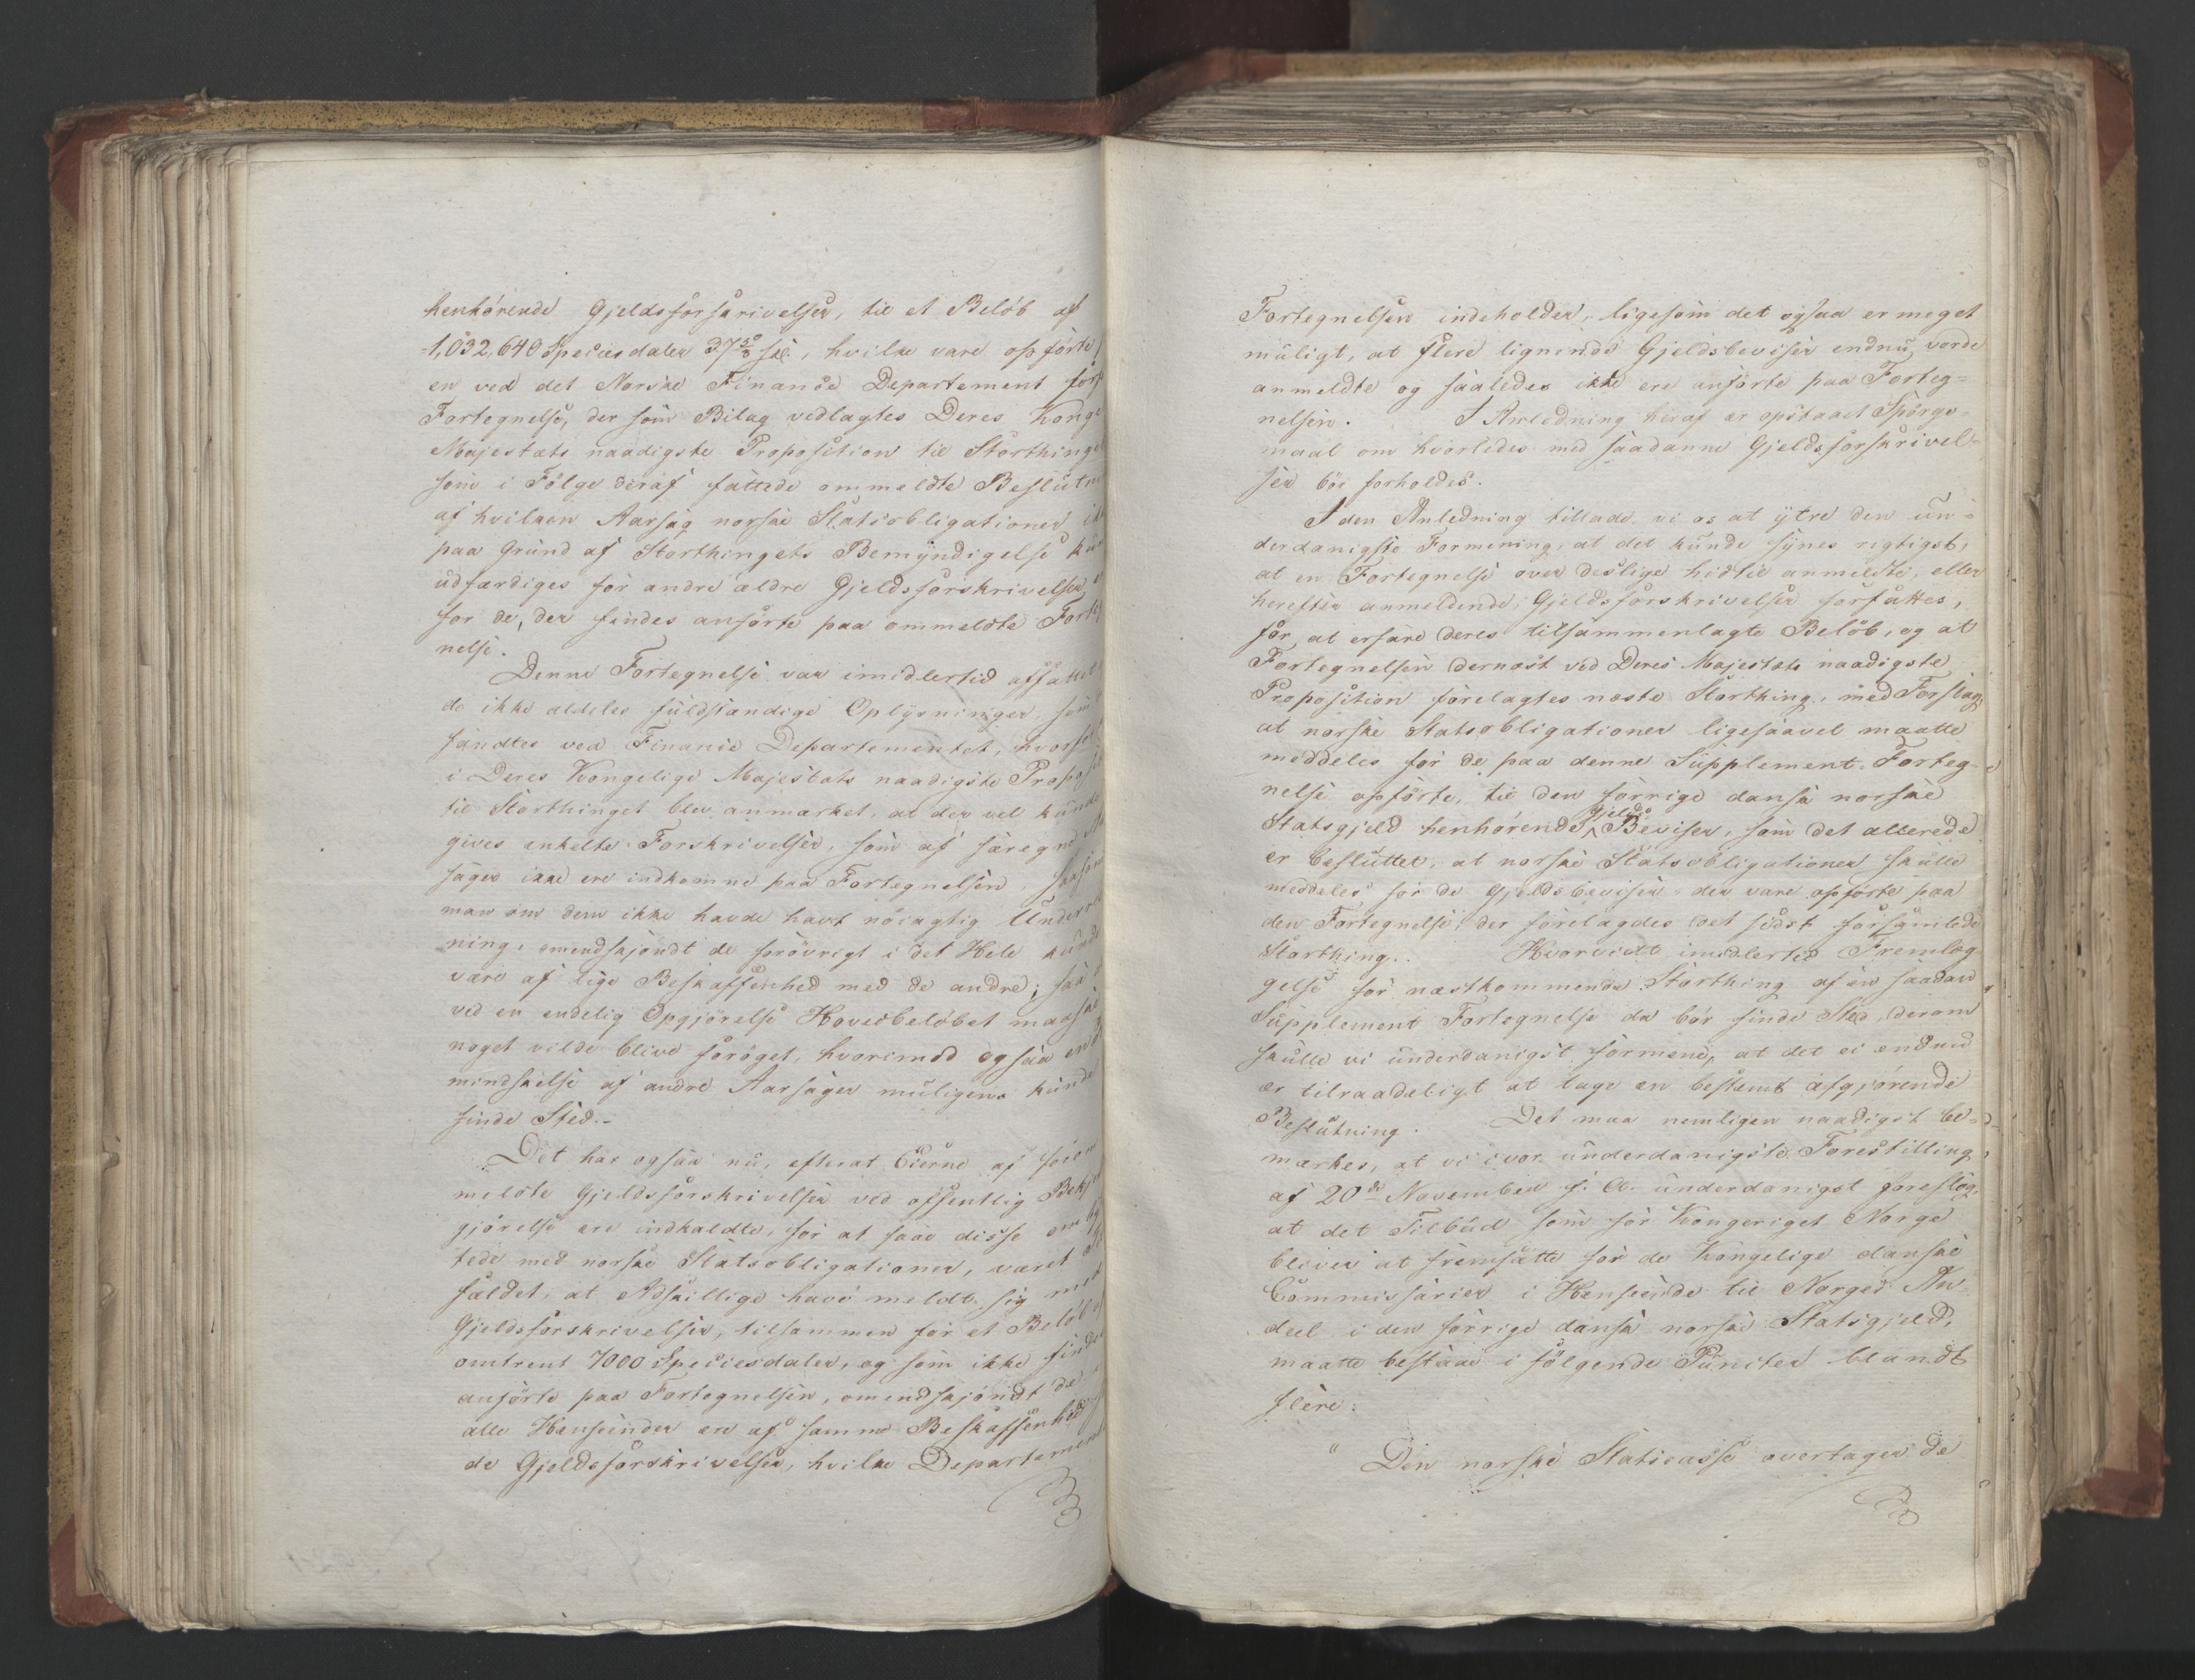 henhörende Gjeldsforskrivelser, til et Belöb af
1,032,640 Speciesdaler 37 sk., hvilke vare opförte
en ved det Norske Finance Departement
Fortegnelse, der som Bilag vedlagtes Deres Konge
Majestæts naadigste Proposition til Storthinge
som i Fölge deraf fattede ommeldte Beslutn
af hvilken Aarsag norske Statsobligationer
paa Grund af Storthingets Bemyndigelse
udfærdiges for andre ældre Gjeldsforskrivelser
for de, der findes anförte paa ommeldte Forte
nelse.
Denne Fortegnelse var imidlertid affattet
de ikke aldeles fuldstændige Oplysninger, som
fandtes ved Finance Departementet, hvorfor
i Deres Kongelige Majestæts naadigste Propo
til Storthinget blev anmærket, at der vel kunde
gives enkelte Forskrivelser, som af særegne
sager ikke ere indkomne paa Fortegnelsen, saasom
man om dem ikke havde havt nöiagtig Underret
ning, omendskjöndt de forövrigt i det Hele kunde
være af lige Beskaffenhed med de andre; saa
ved en endelig Opgjörelse Hovedbelöbet maaske
noget vilde blive foröget, hvorimod ogsaa en
mindskelse af andre Aarsager muligens kunde
finde Sted.-
Det har ogsaa nu, efterat Eierne af foran
meldte Gjeldsforskrivelser ved offentlig Bekjendt
gjörelse ere indkaldte, for at faae disse omby
tede med norske Statsobligationer, været
fældet, at Adskillige have meldt sig med
Gjeldsforskrivelser, tilsammen for et Belöb af
omtrent 7000 Speciesdaler, og som ikke findes
anförte paa Fortegnelsen, omendskjöndt de i
alle Henseender ere af samme Beskaffenhed
de Gjeldsforskrivelser, hvilke Departement
Fortegnelsen indeholder, ligesom det ogsaa er meget
muligt, at flere lignende Gjeldsbeviser endnu vorde
anmeldte og saaledes ikke ere anförte paa Forteg=
nelsen. I Anledning heraf er opstaaet Spörgs=
maal om hvorledes med saadanne Gjeldsforskrivel=
ser bör forholdes.
I den Anledning tillade vi os at ytre den un=
derdanigste Formening, at det kunde synes rigtigst,
at en Fortegnelse over deslige hidtil anmeldte, eller
herefter anmeldende, Gjeldsforskrivelser forfattes,
for at erfare deres tilsammenlagte Belöb, og at
Fortegnelsen dernæst ved Deres Majestæts naadigste
Proposition forelagtes næste Storthing, med Forslag,
at norske Statsobligationer ligesaavel maatte
meddeles for de paa denne Supplement-Forteg=
nelse opförte, til den forrige dansk norske
Statsgjeld henhörende Gjelds Beviser, som det allerede
er besluttet, at norske Statsobligationer skulle
meddeles for de Gjeldsbeviser der vare opförte paa
den Fortegnelse, der forelagdes det sidst forsamlede
Storthing. Hvorvidt imidlertid Fremlæg=
gelse for næstkommende Storthing af en saadan
Supplement Fortegnelse da bör finde Sted, derom
skulle vi underdanigst formene, at det ei endnu
er tilraadeligt at tage en bestemt afgjörende
Beslutning. Det maa nemligen naadigst be=
mærkes, at vi i vor underdanigste Forestilling
af 20de November f. A. underdanigst foreslog,
at det Tilbud som for Kongeriget Norge
bliver at fremsætte for de Kongelige danske
Commissarier i Henseende til Norges An=
deel i den forrige dansk norske Statsgjeld,
maatte bestaae i fölgende Puncter blandt
flere:
" Den norske Statscasse overtager de